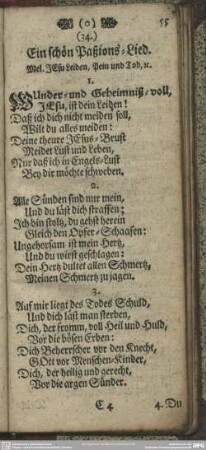 (0)
55
(34.)
Ein schön Paßions-Lied.
Mel. JEsu Leiden, Pein und Tod, ꝛc.
1.
WUnder- und Geheimniß-voll,
JEsu, ist dein Leiden!
Daß ich dich nicht meiden soll,
Wilt du alles meiden:
Deine theure JEsus-Brust
Meidet Lust und Leben,
Nur daß ich in Engels-Lust
Bey dir möchte schweben.
2.
Alle Sünden sind nur mein,
Und du läst dich straffen;
Ich bin stoltz, du gehst herein
Gleich den Opfer-Schaafen:
Ungehorsam ist mein Hertz,
Und du wirst geschlagen:
Dein Hertz dultet allen Schmertz,
Meinen Schmertz zu jagen.
3.
Auf mir liegt des Todes Schuld,
Und dich läst man sterben,
Dich, der fromm, voll Heil und Huld,
Vor die bösen Erben:
Dich Beherrscher vor den Knecht,
GOtt vor Menschen-Kinder,
Dich, der heilig und gerecht,
Vor die argen Sünder.
C 4
4. Du